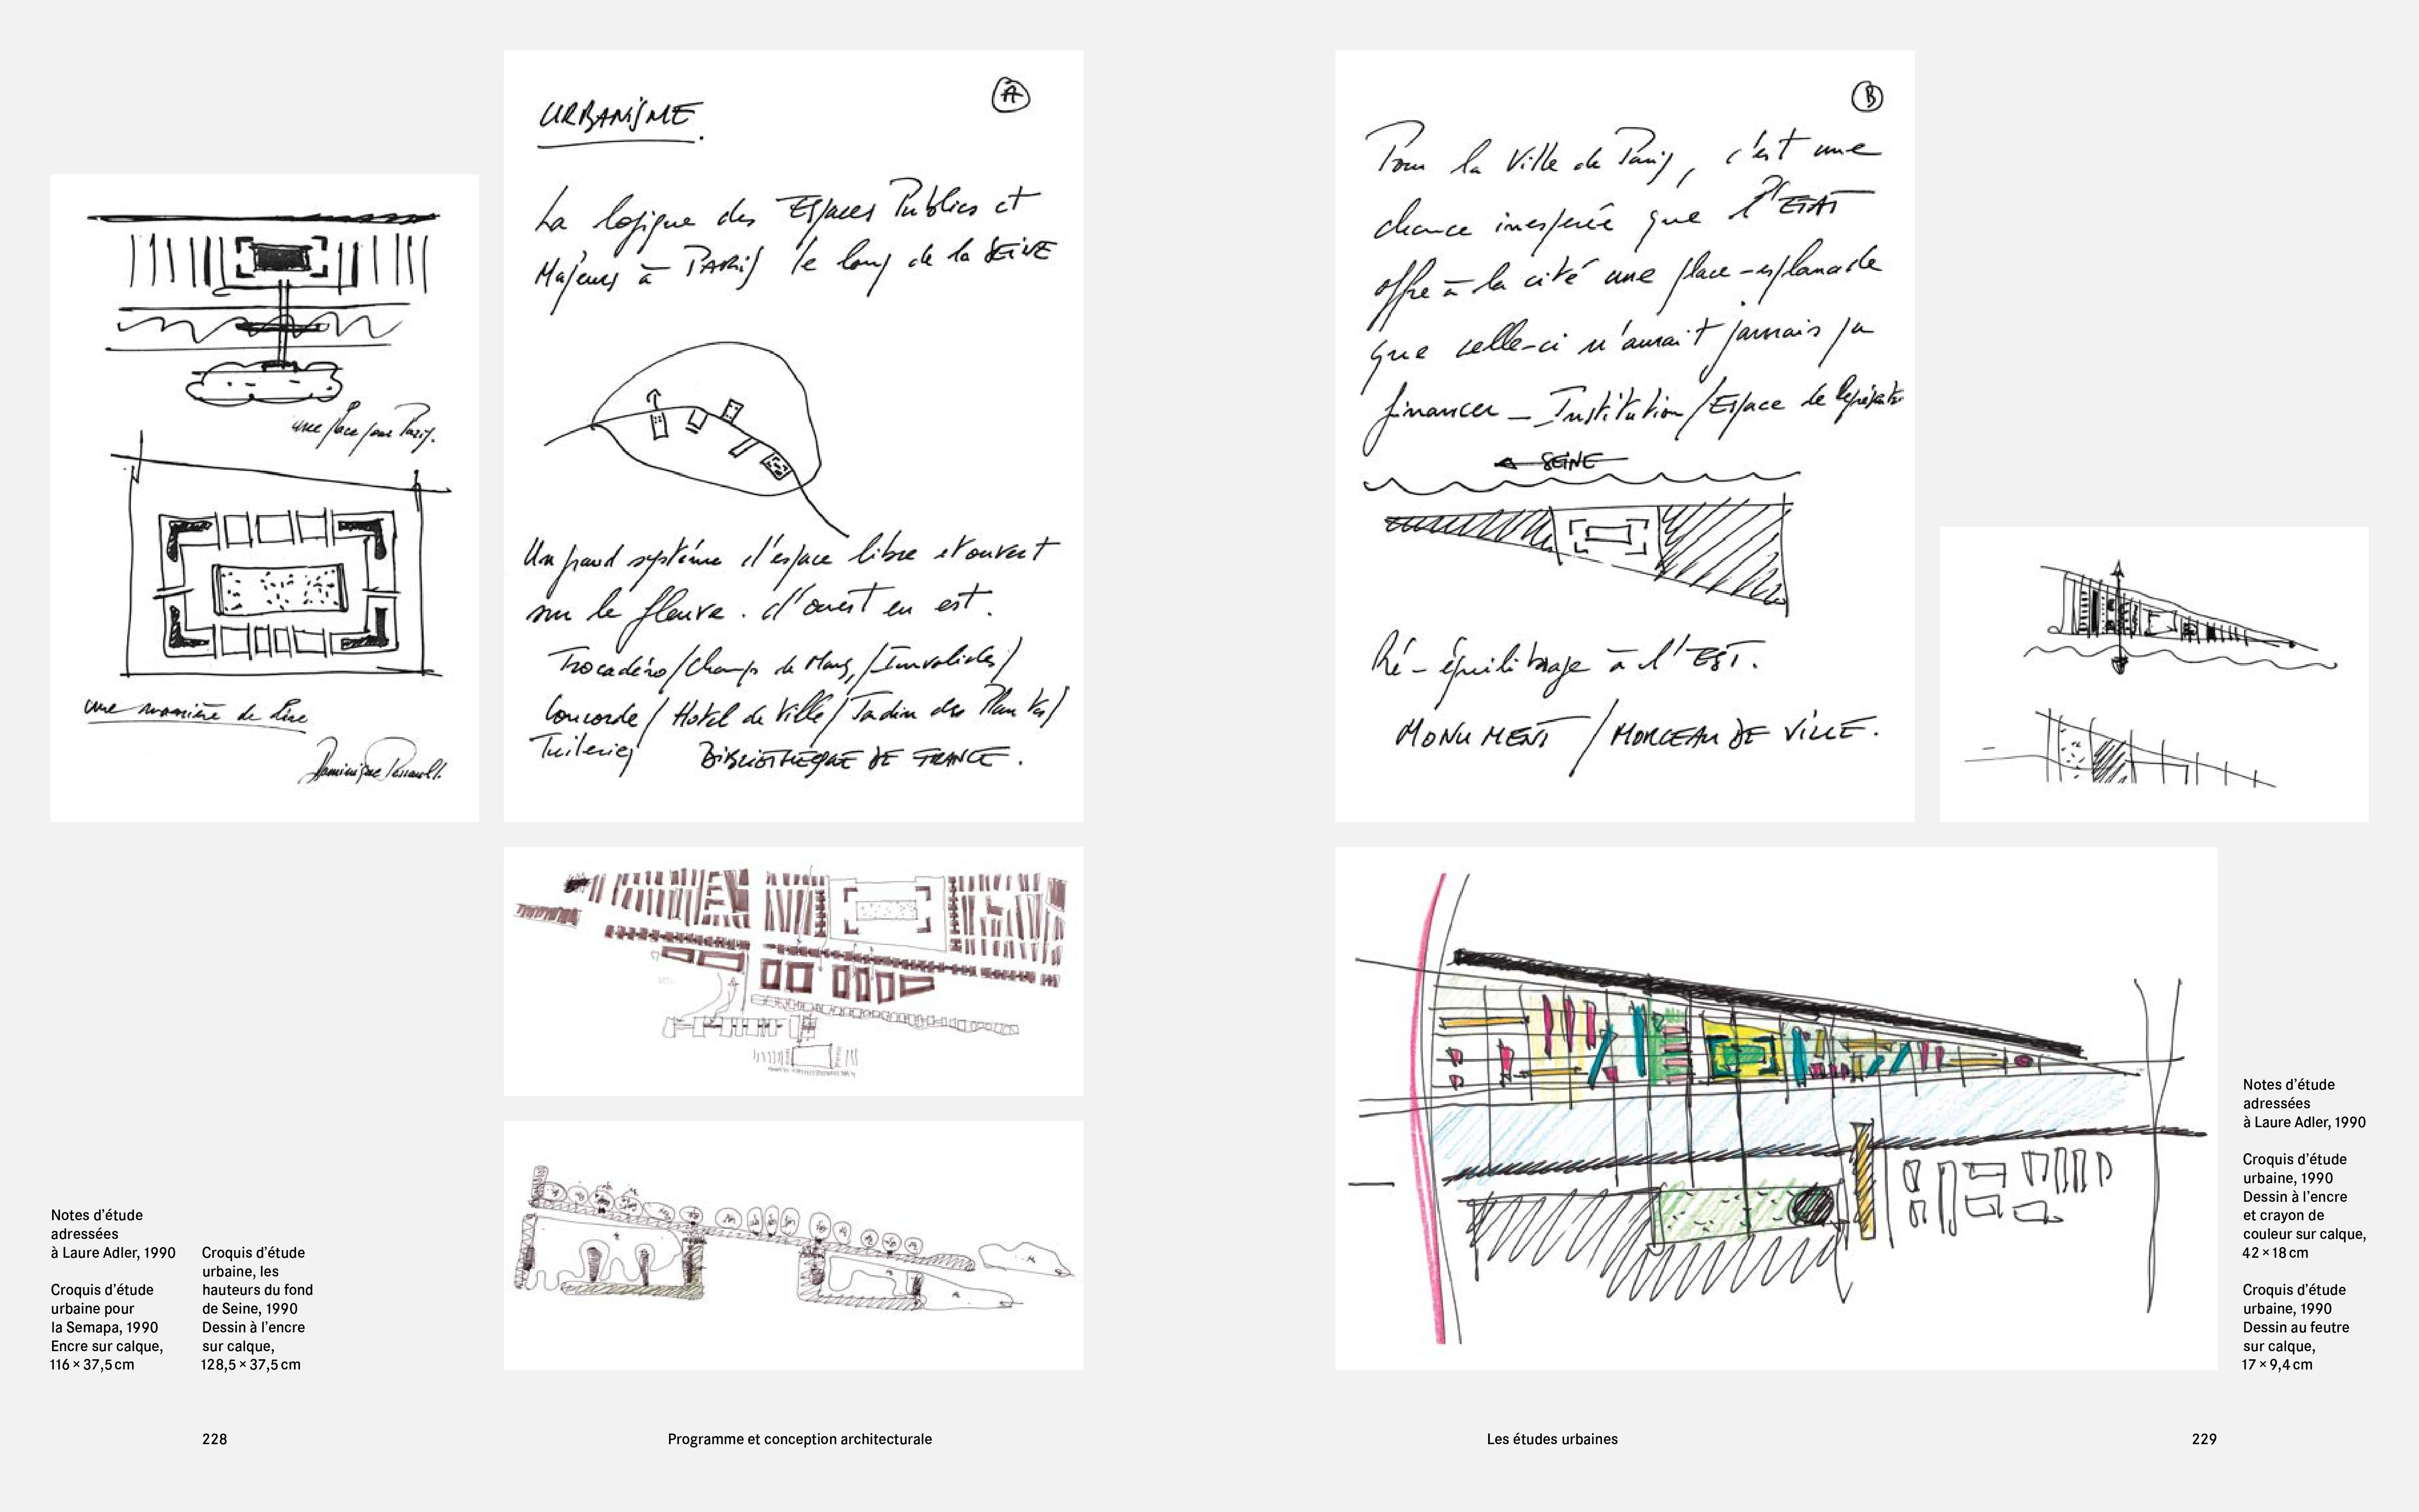 une place pour Paris.
une manière de lire
Dominique Perrault.
A
URBANISME.
La logique des Espaces Publics et
Majeurs à PARIS le long de la SEINE
Un grand système d'espace libre et ouvert
sur le fleuve. d'ouest en est.
Trocadéro/Champ de Mars,/Invalides/
Concorde/Hotel de Ville/Jardin des Plantes/
Tuileries BIBLIOTHÈQUE DE FRANCE.
B
Pour la Ville de Paris, c'est une
chance inespérée que l'ETAT
offre à la cité une place-esplanade
que celle-ci n'aurait jamais pu
financer _ Institution/Espace de
SEINE
Ré-équilibrage à l'EST.
MONUMENT / MORCEAU DE VILLE.
Notes d'étude
adressées
à Laure Adler, 1990
Croquis d'étude
urbaine pour
la Semapa, 1990
Encre sur calque,
116 × 37,5 cm
Croquis d'étude
urbaine, les
hauteurs du fond
de Seine, 1990
Dessin à l'encre
sur calque,
128,5 × 37,5 cm
Notes d'étude
adressées
à Laure Adler, 1990
Croquis d'étude
urbaine, 1990
Dessin à l'encre
et crayon de
couleur sur calque,
42 × 18 cm
Croquis d'étude
urbaine, 1990
Dessin au feutre
sur calque,
17 × 9,4 cm
228
Programme et conception architecturale
Les études urbaines
229